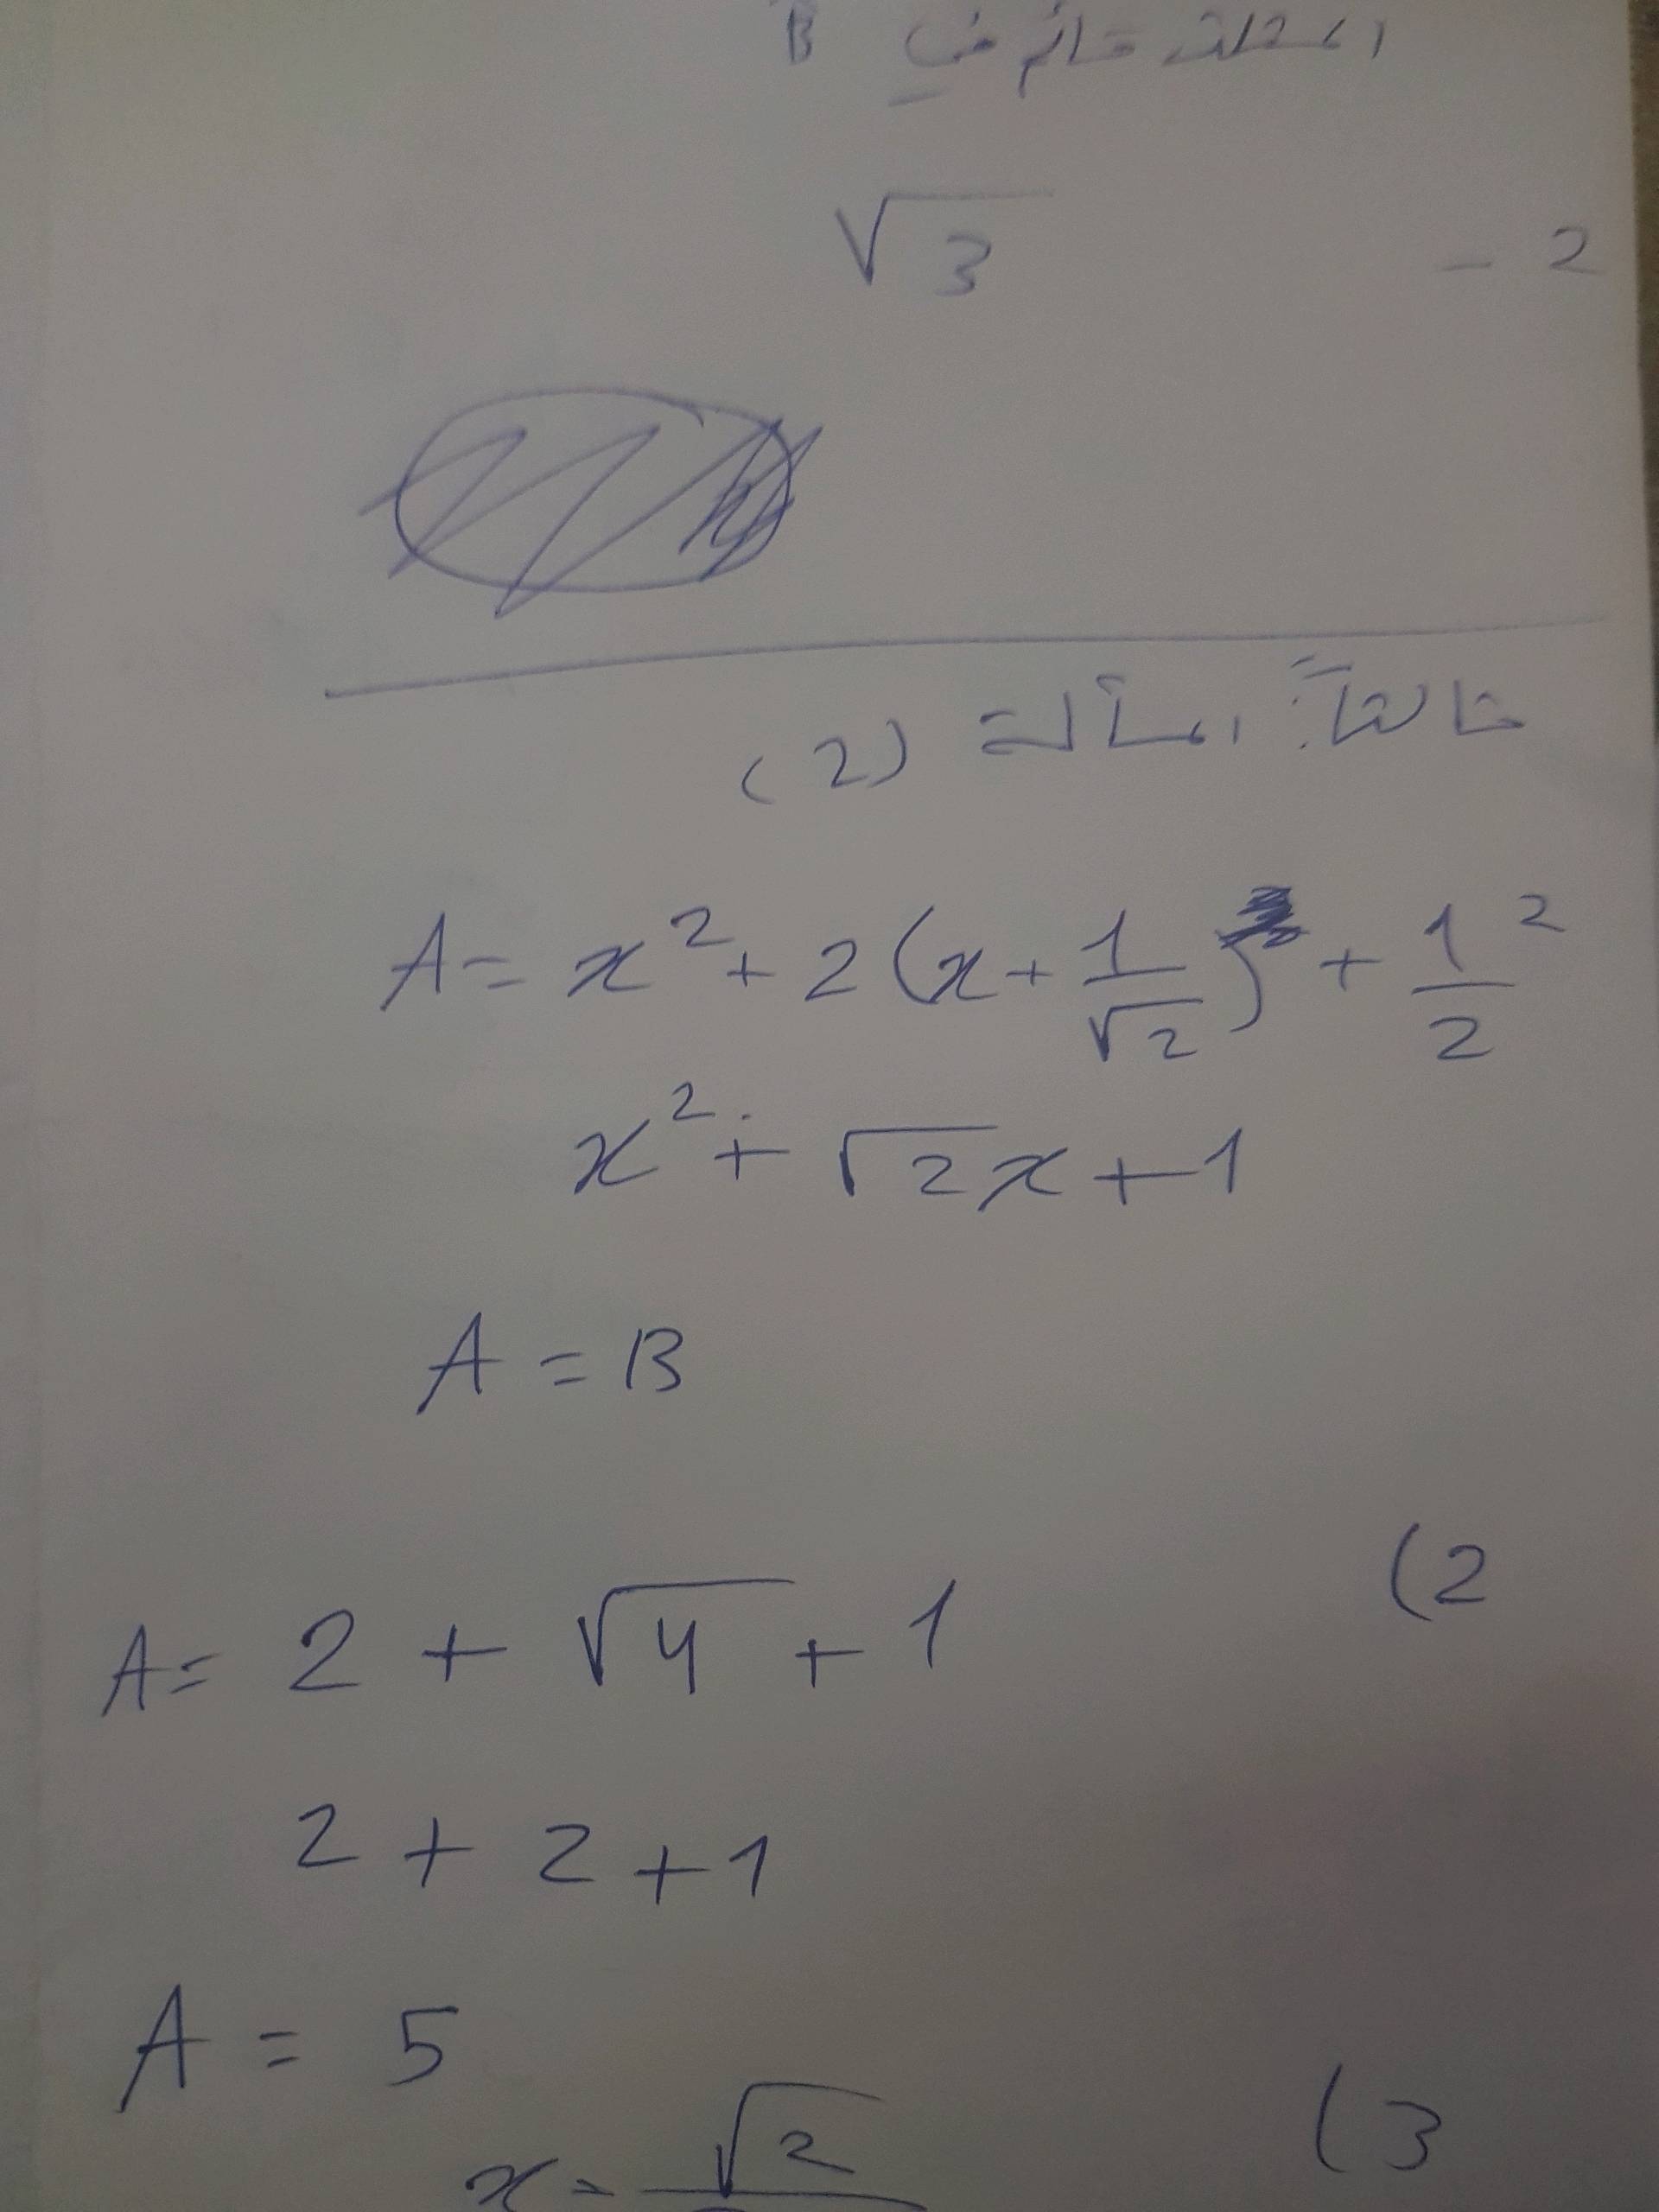 المثلث قائم في B
2 - √3
ثالثاً: المسألة (2)
A = x² + 2(x + 1/√2) + 1²/2
x² + √2x + 1
A = B
(2
A = 2 + √4 + 1
2 + 2 + 1
A = 5
(3
x = √2